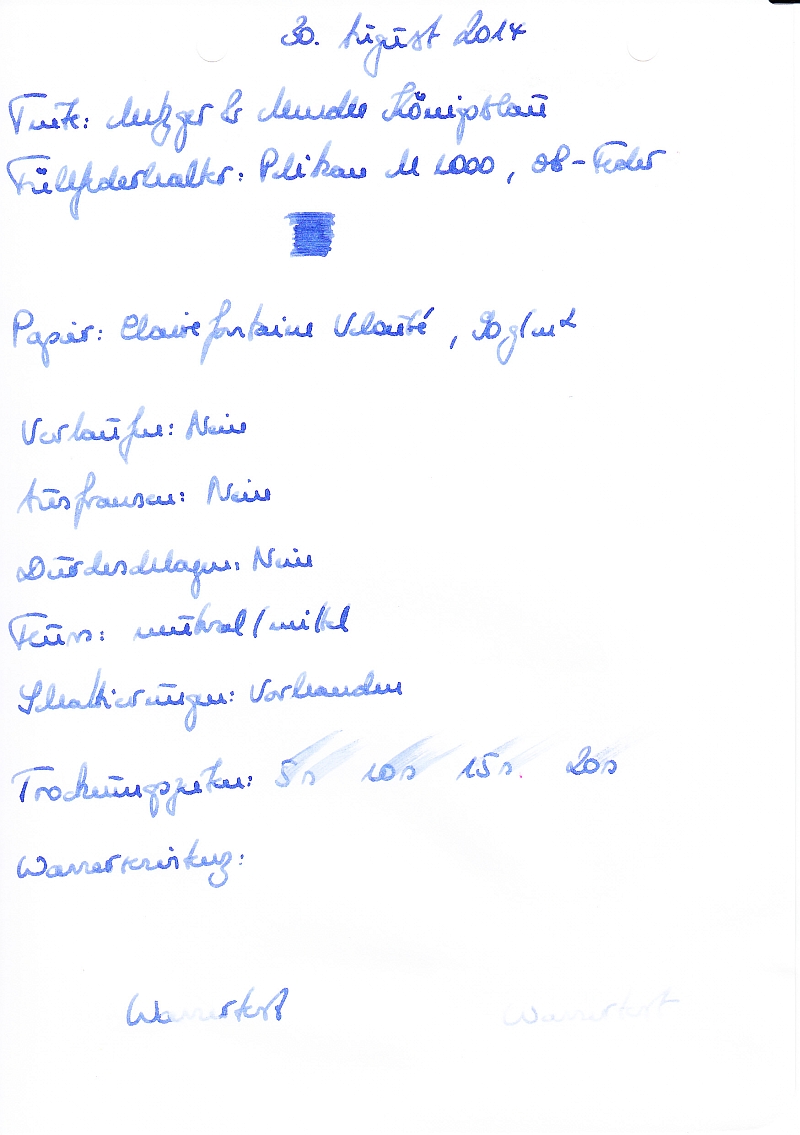 30. August 2014
Tinte: Metzger & Mendle Königsblau
Füllfederhalter: Pelikan M 1000, OB-Feder
Papier: Clairefontaine Velouté, 90 g/m²
Verlaufen: Nein
Ausfransen: Nein
Durchschlagen: Nein
Fluss: neutral/mittel
Schattierungen: Vorhanden
Trocknungszeiten: 5s 10s 15s 20s
Wasserresistenz:
Wassertest Wassertest